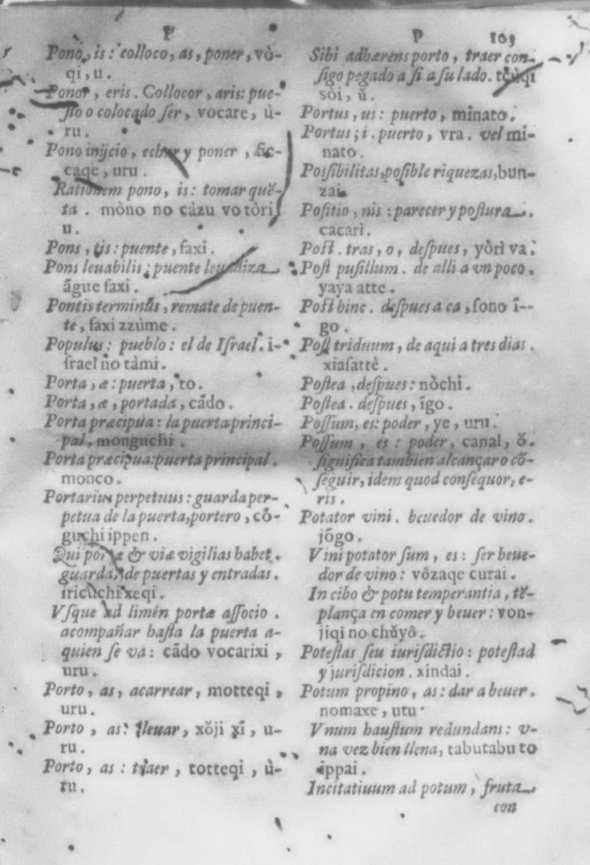 P
Pono, is: colloco, as, poner, vò-
qi, u.
Ponor, eris. Collocor, aris: pue-
sto o colocado ser, vocare, ù-
ru.
Pono inijcio, echar y poner,
caqe, uru.
Rationem pono, is: tomar quẽ-
ta. mòno no càzu vo tòri,
u.
Pons, tis: puente, faxi.
Pons leuabilis; puente leuadiza
ãgue faxi.
Pontis terminus, remate de puen-
te, faxi zzúme.
Populus: pueblo: el de Israel. i-
srael no tàmi.
Porta, æ: puerta, to.
Porta, æ, portada, cãdo.
Porta præcipua: la puerta princi-
pal, monguchi.
Porta præcipua: puerta principal.
monco.
Portarius perpetuus: guarda per-
petua de la puerta, portero, cõ-
guchi ippen.
Qui portæ & viæ vigilias habet.
guarda, de puertas y entradas.
iricuchi xeqi.
Vsque ad limen portæ associo.
acompañar hasta la puerta a-
quien se va: cãdo vocarixi,
uru.
Porto, as, acarrear, motteqi,
uru.
Porto, as: lleuar, xŏji xi, u-
ru.
Porto, as: traer, totteqi, ù-
ru.
P 103
Sibi adhærens porto, traer con-
sigo pegado a si a su lado. tçuqi
sòi, ŭ.
Portus, us: puerto, minato.
Portus; i. puerto, vra. vel mi-
nato.
Possibilitas, posible riquezas, bun-
zai.
Positio, nis: parecer y postura.
cacari.
Post. tras, o, despues, yòri va.
Post pusillum. de alli a vn poco.
yaya atte.
Post hinc. despues a ca, sono ĩ-
go.
Post triduum, de aqui a tres dias.
xiasattè.
Postea, despues: nòchi.
Postea. despues, ĩgo.
Possum, es: poder, ye, uru.
Possum, es: poder, canai, ŏ.
significa tambien alcançar o cõ-
seguir, idem quod consequor, e-
ris.
Potator vini. beuedor de vino.
jõgo.
Vini potator sum, es: ser beue-
dor de vino: võzaqe curai.
In cibo & potu temperantia, tẽ-
plança en comer y beuer: von-
jiqi no chŭyô.
Potestas seu iurisdictio: potestad
y jurisdicion. xindai.
Potum propino, as: dar a beuer.
nomaxe, utu.
Vnum haustum redundans: v-
na vez bien llena, tabutabu to
ippai.
Incitatiuum ad potum, fruta
con